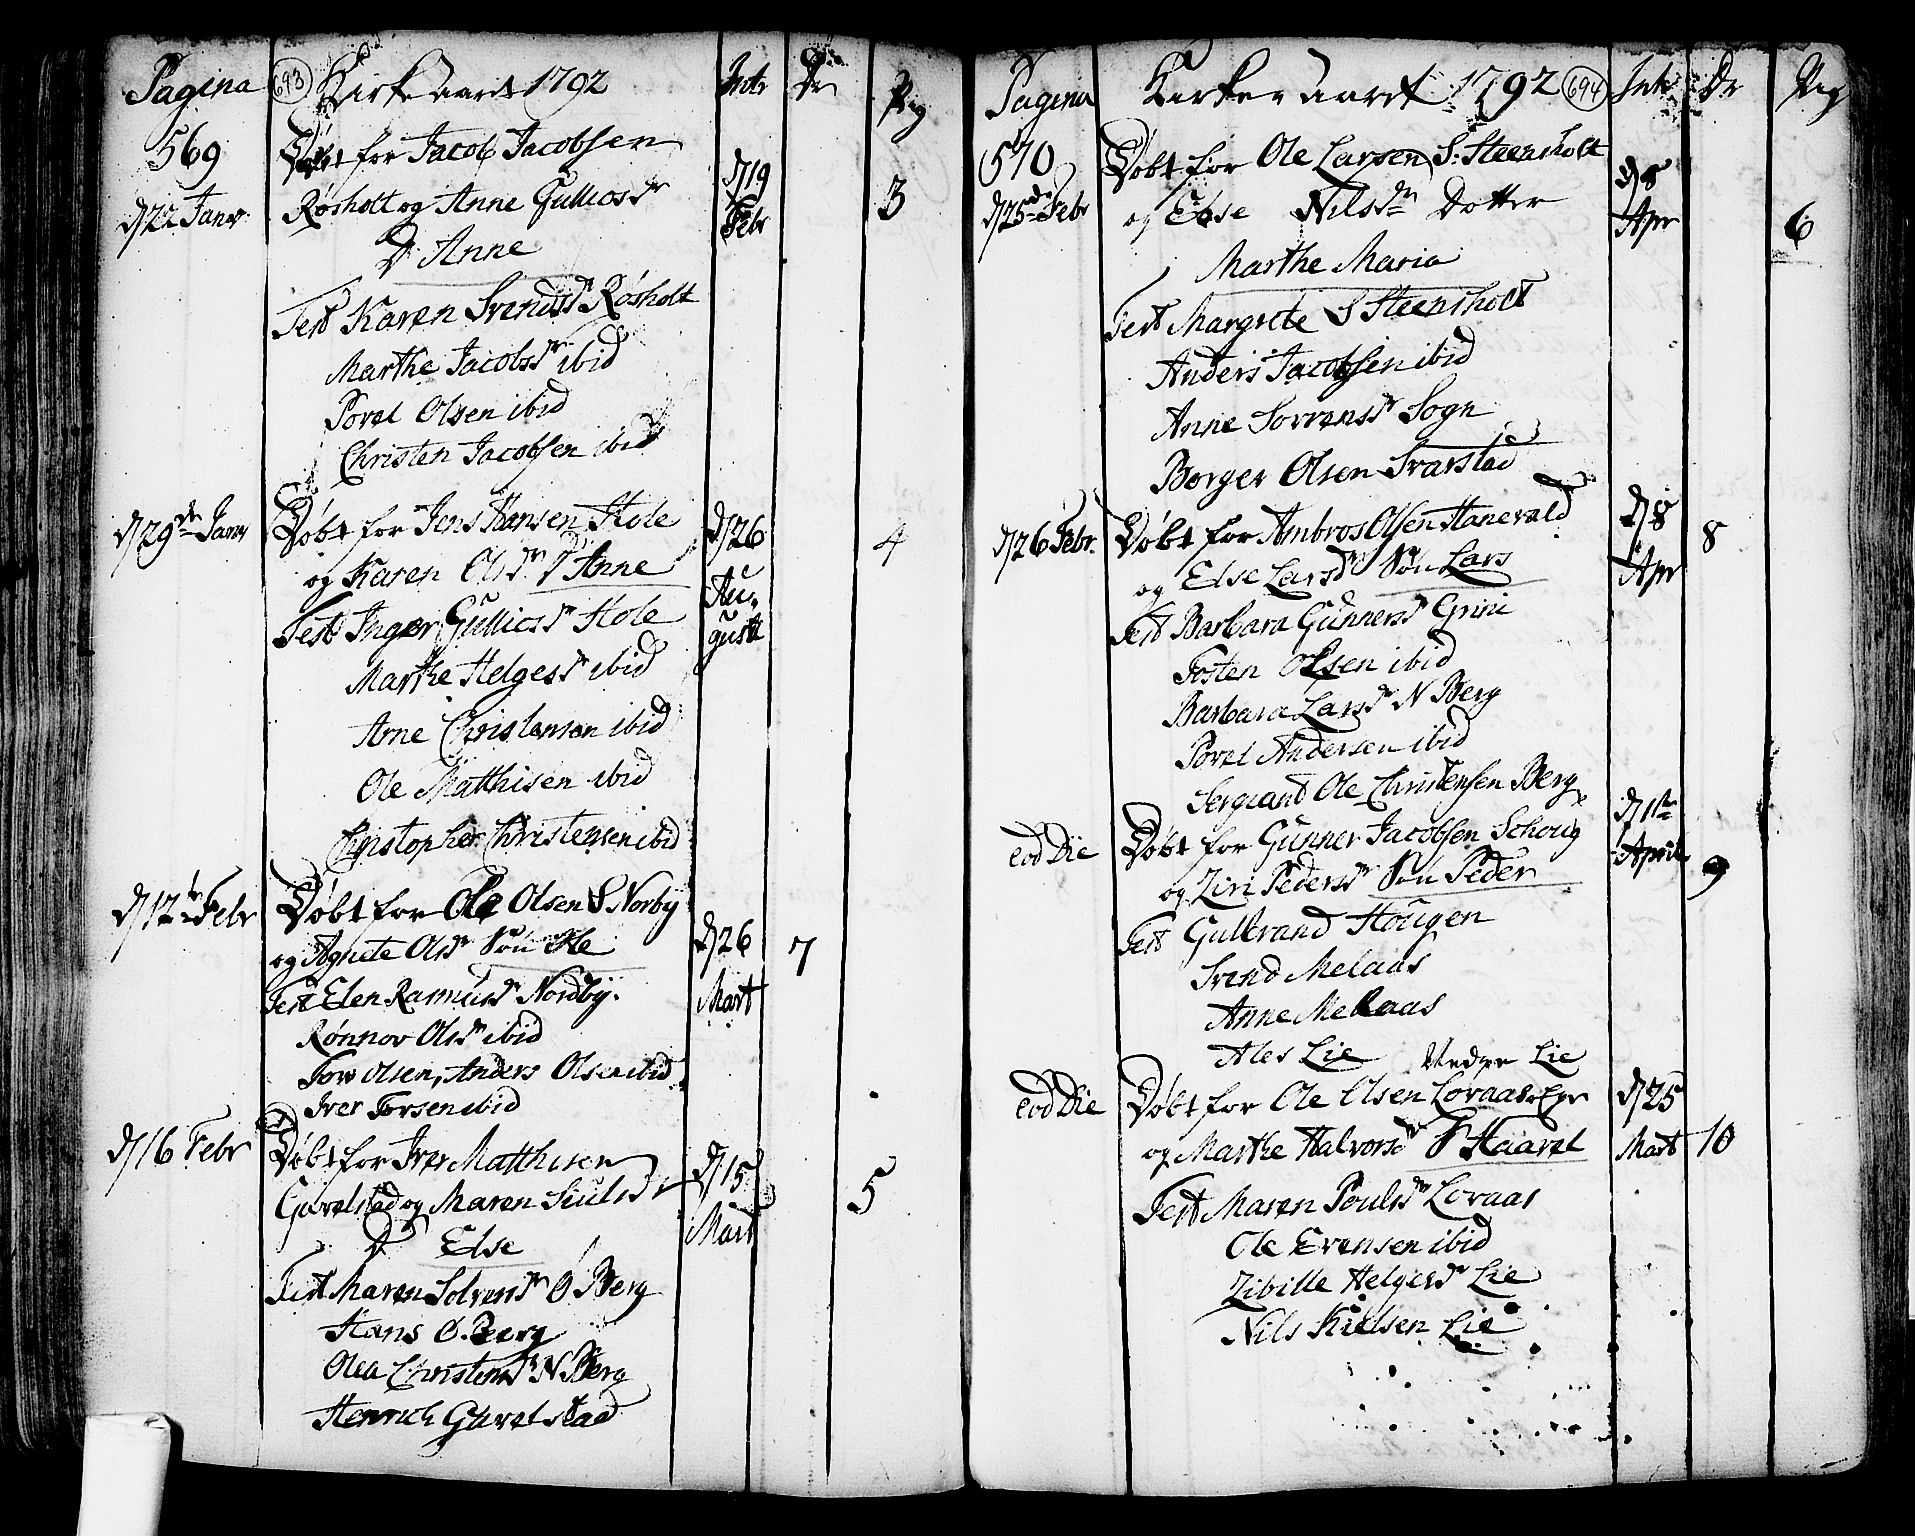 Pagina 693 Kirke aaret 1792 Intr Dr Pig
569 Døbt for Jacob Jacobsen
d 22 Janv Røsholt og Anne Gullichsdr d 19 Febr 3
D Anne
Test Karen Svendsdr Røsholt
Marthe Jacobsdr ibid
Povel Olsen ibid
Christen Jacobsen ibid
d 29de Janv Døbt for Jens Hansen Hole d 26 Au-
og Karen Olsdr D Anne 4
Test Inger Gullicsdr Hole gusti
Marthe Helgesdr ibid
Arne Christensen ibid
Ole Matthisen ibid
Christopher Christensen ibid
d 12te Febr Døbt for Ole Olsen S Norby
og Agnete Olsdr Søn Ole d 26 7
Test Elen Rasmusdr Nordby. Mart
Rønnov Olsdr ibid
Tor Olsen, Anders Olsen ibid
Iver Torsen ibid
d 16 Febr Døbt for Iver Matthisen
Gavelstad og Maren Siulsdr d 15 5
D Else Mart
Test Maren Solvensdr Ø Berg
Hans Ø. Berg
Olea Christensdr N Berg
Henrich Gavelstad
Pagina Kirke aaret 1792 694 Intr Dr Pig
570 Døbt for Ole Larsen S. Steensholt d 8
d 25de Febr og Else Nilsdr Dotter Apr 6
Marthe Maria
Test Margrete S Steensholt
Anders Jacobsen ibid
Anne Sørrensdr Sogn
Borger Olsen Svarstad
d 26 Febr. Døbt for Ambros Olsen Hanevald d 8 8
og Else Larsdr Søn Lars Apr
Test Barbara Gunnersdr Grini
Tosten Olsen ibid
Barbara Larsdr N Berg
Povel Andersen ibid
Sergiand Ole Christensen Berg
eod Die Døbt for Gunner Jacobsen Schoug d 1ste
og Ziri Pedersdr Søn Peder April 9
Test Gulbrand Hougen
Svend Melaas
Anne Melaas
Ales Lie
Nedre Lie
eod Die Døbt for Ole Olsen Lovaas Eye d 25
og Marthe Halvorsdr S Haavel Mart 10
Test Maren Poulsdr Lovaas
Ole Evensen ibid
Zibille Helgesdr Lie
Nils Kielsen Lie